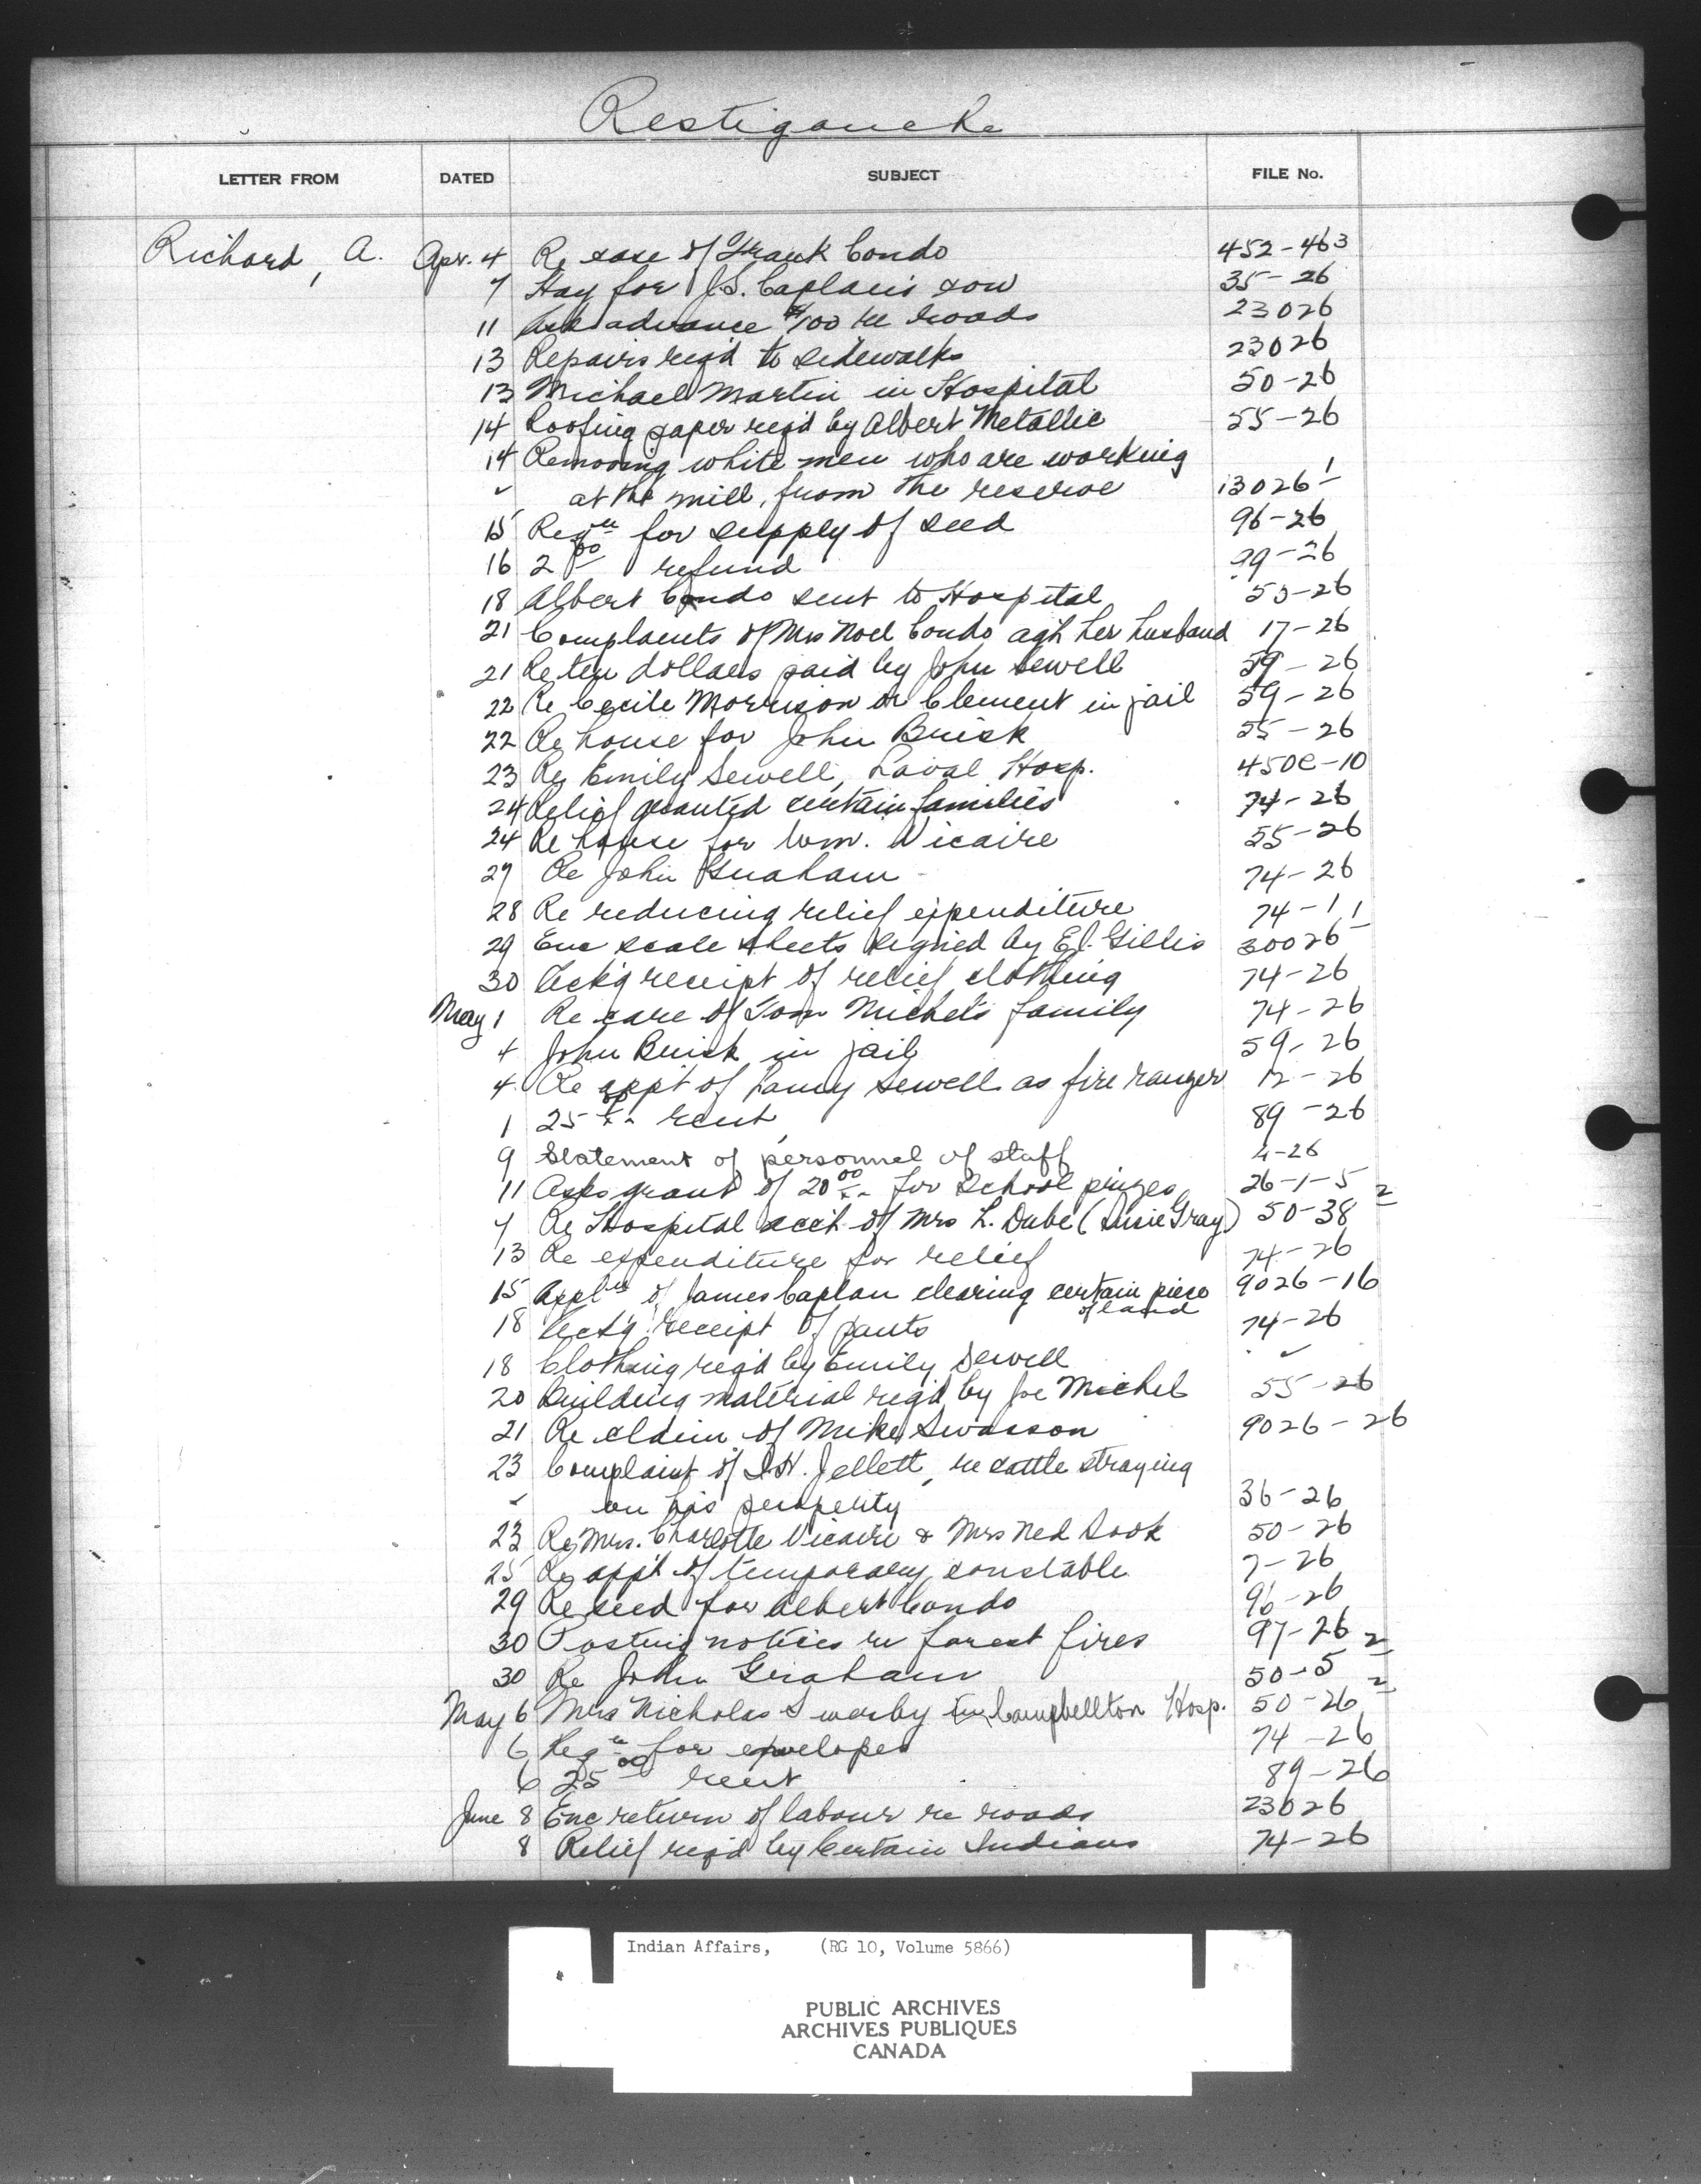 Restigouche
LETTER FROM DATED SUBJECT FILE No.
Richard, A. Apr. 4 Re case of Frank Condo 452-463
7 Hay for J.S. Caplain's cow 35-26
11 Ask advance $100 re roads 23026
13 Repairs req'd to sidewalks 23026
13 Michael Martin in Hospital 50-26
14 Roofing paper req'd by Albert Metallic 55-26
14 Removing white men who are working
" at the mill, from the reserve 13026-1
15 Reqn for supply of seed 96-26
16 2 00 refund 99-26
18 Albert Condo sent to Hospital 50-26
21 Complaints of Mrs Noel Condo ag'n her husband 17-26
21 Re ten dollars paid by John Sewell 59-26
22 Re Cecile Morrison or Clement in jail 59-26
22 Re house for John Buisk 55-26
23 Re Emily Sewell, Laval Hosp. 450e-10
24 Relief granted certain families 74-26
24 Re house for Wm. Vicaire 55-26
27 Re John Graham 74-26
28 Re reducing relief expenditure 74-1
29 Enc scale sheets signed by Ed. Gillis 30026-1
30 Ack'g receipt of relief clothing 74-26
May 1 Re care of Tom Michel's family 74-26
4 John Buisk in jail 59-26
4 Re app't of Lamey Sewell as fire ranger 12-26
1 25 00 rent 89-26
9 Statement of personnel of staff 4-26
11 Asks grant of 20 00 for School prizes 26-1-5
7 Re Hospital acc't of Mrs L. Dube (Susie Gray) 50-38 2
13 Re expenditure for relief 74-26
15 Appln of James Caplan clearing certain piece 9026-16
of land
18 Ack'g receipt of pants 74-26
18 Clothing req'd by Emily Sewell "
20 Building material req'd by Joe Michel 55-26
21 Re claim of Mike Swasson 9026-26
23 Complaint of I.H. Jellett, re cattle straying
" on his property 36-26
23 Re Mrs. Charlotte Vicaire & Mrs Ned Sook 50-26
25 Re app't of temporary constable 7-26
29 Re seed for Albert Condo 96-26
30 Posting notices re forest fires 97-26
30 Re John Graham 50-5 2
May 6 Mrs Nicholas Swasby in Campbellton Hosp. 50-26 2
6 Reqn for envelopes 74-26
6 25 00 rent 89-26
June 8 Enc return of labour re roads 23026
8 Relief req'd by Certain Indians 74-26
Indian Affairs, (RG 10, Volume 5866)
PUBLIC ARCHIVES
ARCHIVES PUBLIQUES
CANADA